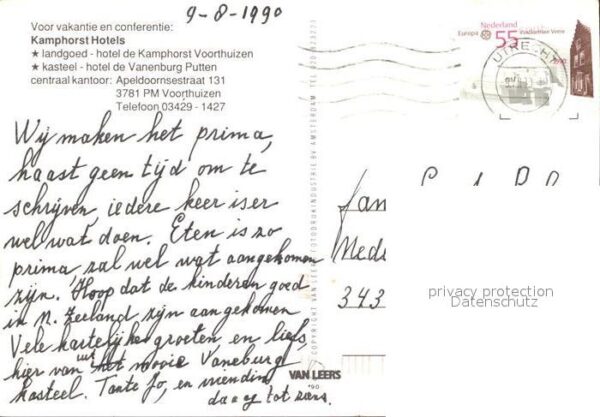 9-8-1990
Voor vakantie en conferentie:
Kamphorst Hotels
★ landgoed - hotel de Kamphorst Voorthuizen
★ kasteel - hotel de Vanenburg Putten
centraal kantoor: Apeldoornsestraat 131
3781 PM Voorthuizen
Telefoon 03429 - 1427
Nederland
Europa 55
UTRECHT
Wij maken het prima,
haast geen tijd om te
schrijven, iedere keer is er
wel wat doen. Eten is zo
prima, zal wel wat aangekomen
zijn. Hoop dat de kinderen goed
in N. Zeeland zijn aangekomen
Vele hartelijke groeten en liefs,
hier van uit het mooie Vaneburg
kasteel. Tante Jo, en vriendin
daag tot zons.
COPYRIGHT VAN LEER'S FOTODRUKINDUSTRIE BV AMSTERDAM, TEL. 020
VAN LEERS
'90
Jan
Nede
343
privacy protection
Datenschutz